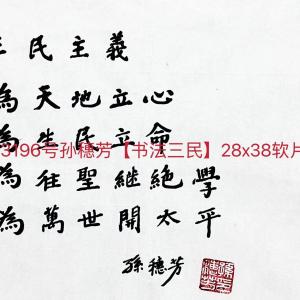 三民主義
為天地立心
為生民立命
3196号孙穗芳【书法三民】28x38软片
為往聖継絶學
為萬世開太平
孫穗芳
孫穗芳